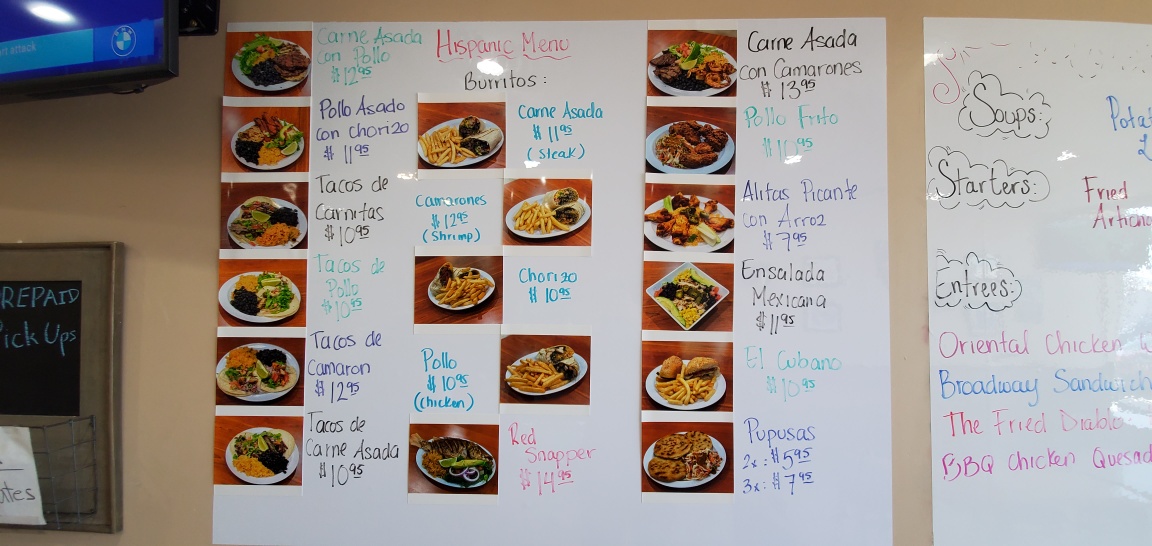 rt attack
REPAID
Pick Ups
utes
Hispanic Menu
Carne Asada
con Pollo
$12.95
Pollo Asado
con chorizo
$11.95
Tacos de
Carnitas
$10.95
Tacos de
Pollo
$10.95
Tacos de
Camaron
$12.95
Tacos de
Carne Asada
$10.95
Burritos:
Carne Asada
$11.95
(Steak)
Camarones
$12.95
(Shrimp)
Chorizo
$10.95
Pollo
$10.95
(Chicken)
Red
Snapper
$14.95
Carne Asada
con Camarones
$13.95
Pollo Frito
$10.95
Alitas Picante
con Arroz
$7.95
Ensalada
Mexicana
$11.95
El Cubano
$10.95
Pupusas
2x: $5.95
3x: $7.95
Soups:
Potat
Starters:
Fried
Articho
Entrees:
Oriental Chicken
Broadway Sandwich
The Fried Diablo
BBQ Chicken Quesad